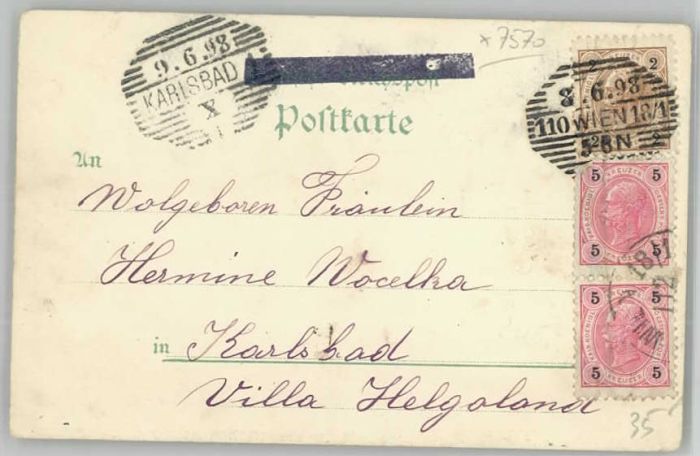 x 7570
9.6.98
KARLSBAD
X
2 2
6.98
110 WIEN 18/1
2 2
Postkarte
An
Wolgeboren Fräulein
5 5
5 5
Hermine Wocelka
in Karlsbad
5 5
5 5
Villa Helgoland
35